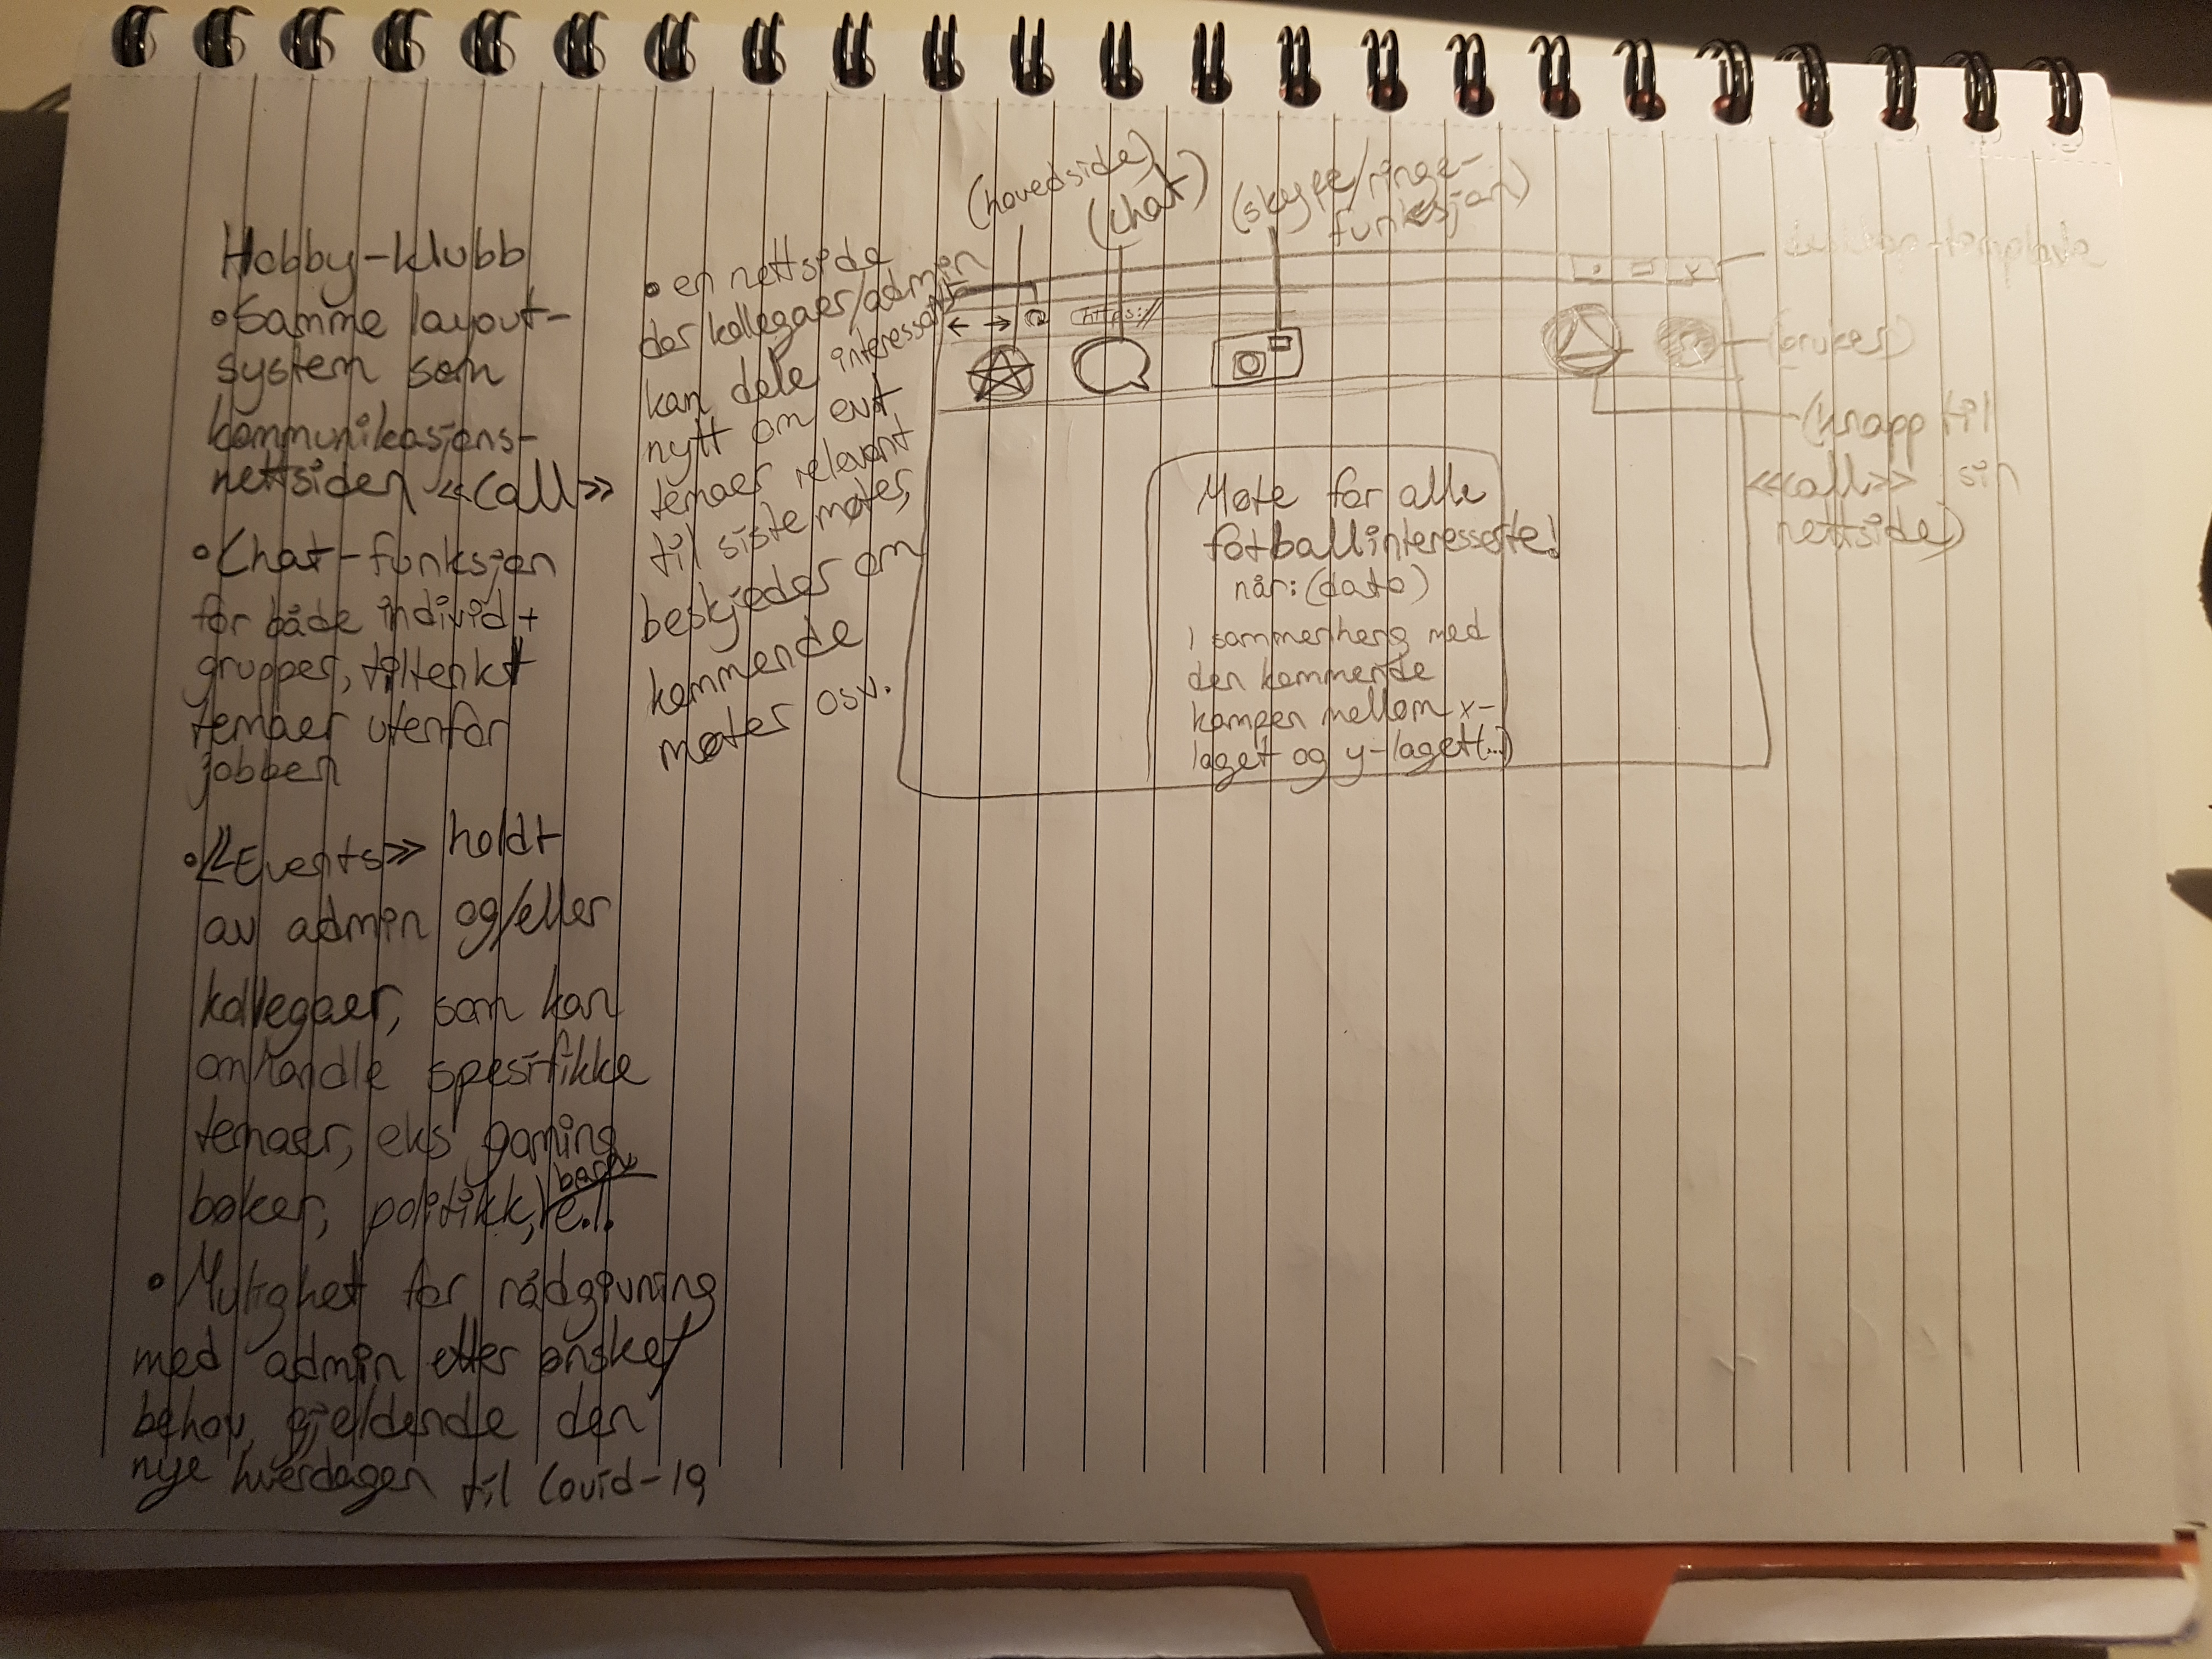 Hobby-klubb
• Samme layout-
system som
kommunikasjons-
nettsiden «Call»
• Chat-funksjon
for både individ +
grupper, tiltenkt
temaer utenfor
jobben
• «Events» holdt
av admin og/eller
kollegaer, som kan
omhandle spesifikke
temaer, eks gaming
bøker, politikk, e.l.
• Mulighet for rådgivning
med admin etter ønsket
behov, gjeldende den
nye hverdagen til Covid-19
• en nettside
der kollegaer/admin
kan dele interessant
nytt om evt
temaer relevant
til siste møter,
beskjeder om
kommende
møter osv.
(hovedside)
(chat)
(skype/ringe-
funksjon)
https://
x
(bruker)
(knapp til
«call» sin
nettside)
Møte for alle
fotballinteresserte!
når: (dato)
i sammenheng med
den kommende
kampen mellom x-
laget og y-laget(...)